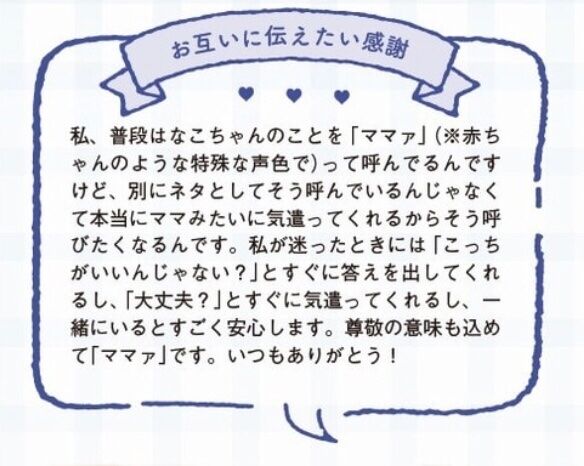 お互いに伝えたい感謝
私、普段はなこちゃんのことを「ママァ」(※赤ち
ゃんのような特殊な声色で)って呼んでるんです
けど、別にネタとしてそう呼んでいるんじゃなく
て本当にママみたいに気遣ってくれるからそう呼
びたくなるんです。私が迷ったときには「こっち
がいいんじゃない？」とすぐに答えを出してくれ
るし、「大丈夫？」とすぐに気遣ってくれるし、一
緒にいるとすごく安心します。尊敬の意味も込め
て「ママァ」です。いつもありがとう！